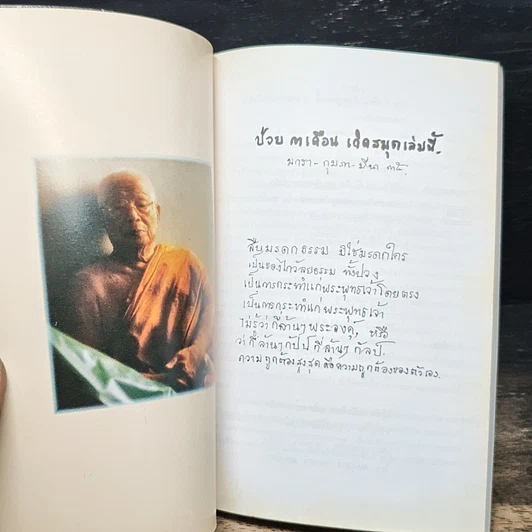 ป่วย ๓ เดือน เกิดสมุดเล่มนี้.
มกรา - กุมภา - มีนา ๓๕
สืบมรดกธรรม มิใช่มรดกใคร
เป็นของไกวัลยธรรม ทั้งปวง
เป็นการกระทำแก่พระพุทธเจ้าโดยตรง
เป็นการกระทำแก่พระพุทธเจ้า
ไม่รู้ว่ากี่ล้านๆ พระองค์, หรือ
ว่ากี่ล้านๆกัปป์ กี่ล้านๆ กัลป์.
ความถูกต้องสูงสุด คือความถูกต้องของตัวเอง.